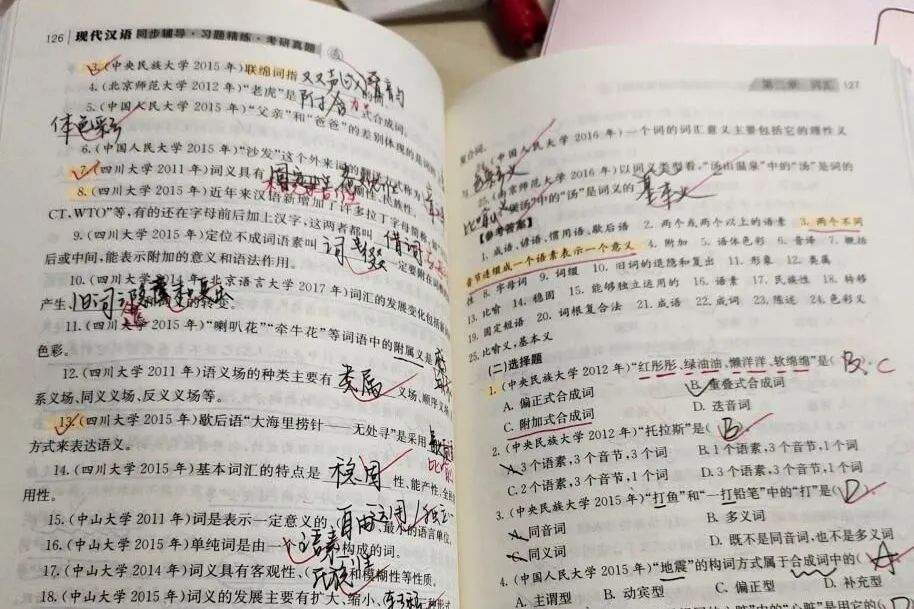 126 现代汉语 同步辅导·习题精练·考研真题
3.(中央民族大学 2015 年)联绵词指
4.(北京师范大学 2012 年)“老虎”是 附加 式合成词。
5.(中国人民大学 2015 年)“父亲”和“爸爸”的差别体现的是词的
6.(中国人民大学 2015 年)“沙发”这个外来词的
7.(四川大学 2011 年)词义具有 性、民族性。
8.(四川大学 2015 年)近年来汉语新增加了许多拉丁字母
CT、WTO”等,有的还在字母前后加上汉字,这两者都叫 借词
9.(四川大学 2015 年)定位不成词语素叫 词缀 一定要附在
后或中间,能表示附加的意义和语法作用。
10.(四川大学 2014 年、北京语言大学 2017 年)词汇的发展变化包括新
产生、旧词 的转变。
11.(四川大学 2015 年)“喇叭花”“牵牛花”等词语中的附属义是
色彩。
12.(四川大学 2011 年)语义场的种类主要有 类属 义场、顺序义场、
系义场、同义义场、反义义场等。
13.(四川大学 2015 年)歇后语“大海里捞针——无处寻”是采用
方式来表达语义。
14.(四川大学 2015 年)基本词汇的特点是 稳固 性、能产性、全
用性。
15.(中山大学 2011 年)词是表示一定意义的、自由运用 / 独立 最小的语言单位。
16.(中山大学 2015 年)单纯词是由一个语素构成的词。
17.(中山大学 2014 年)词义具有客观性、民族性和模糊性等性质。
18.(中山大学 2015 年)词义的发展主要有扩大、缩小、转移
第二章 词汇 127
复合词。
24.(中国人民大学 2016 年)一个词的词汇意义主要包括它的理性义
与 色彩义
25.(南京师范大学 2016 年)以词义类型看,“汤山温泉”中的“汤”是词的
比喻义 汤”中的“汤”是词义的 基本义
【参考答案】
1. 成语、谚语、惯用语、歇后语 2. 两个或两个以上的语素 3. 两个不同
音节连缀成一个语素表示一个意义 4. 附加 5. 语体色彩 6. 音译 7. 概括
性 8. 字母词 9. 词缀 10. 旧词的退隐和复出 11. 形象 12. 类属
13. 比喻 14. 稳固 15. 能够独立运用的 16. 语素 17. 民族性 18. 转移
19. 固定短语 20. 词根复合法 21. 成语 22. 成词 23. 陈述 24. 色彩义
25. 比喻义,基本义
(二)选择题
1.(中央民族大学 2012 年)“红彤彤、绿油油、懒洋洋、软绵绵”是( B )。C
A. 偏正式合成词 B. 重叠式合成词
C. 附加式合成词 D. 迭音词
2.(中央民族大学 2012 年)“托拉斯”是( B
A. 3 个语素,3 个音节,3 个词 B. 1 个语素,3 个音节,1 个词
C. 2 个语素,3 个音节,1 个词 D. 3 个语素,3 个音节,1 个词
3.(中央民族大学 2015 年)“打鱼”和“一打铅笔”中的“打”是( D )。
A. 同音词 B. 多义词
C. 同义词 D. 既不是同音词,也不是多义词
4.(中国人民大学 2015 年)“地震”的构词方式属于合成词中的( A
A. 主谓型 B. 动宾型 C. 偏正型 D. 补充型